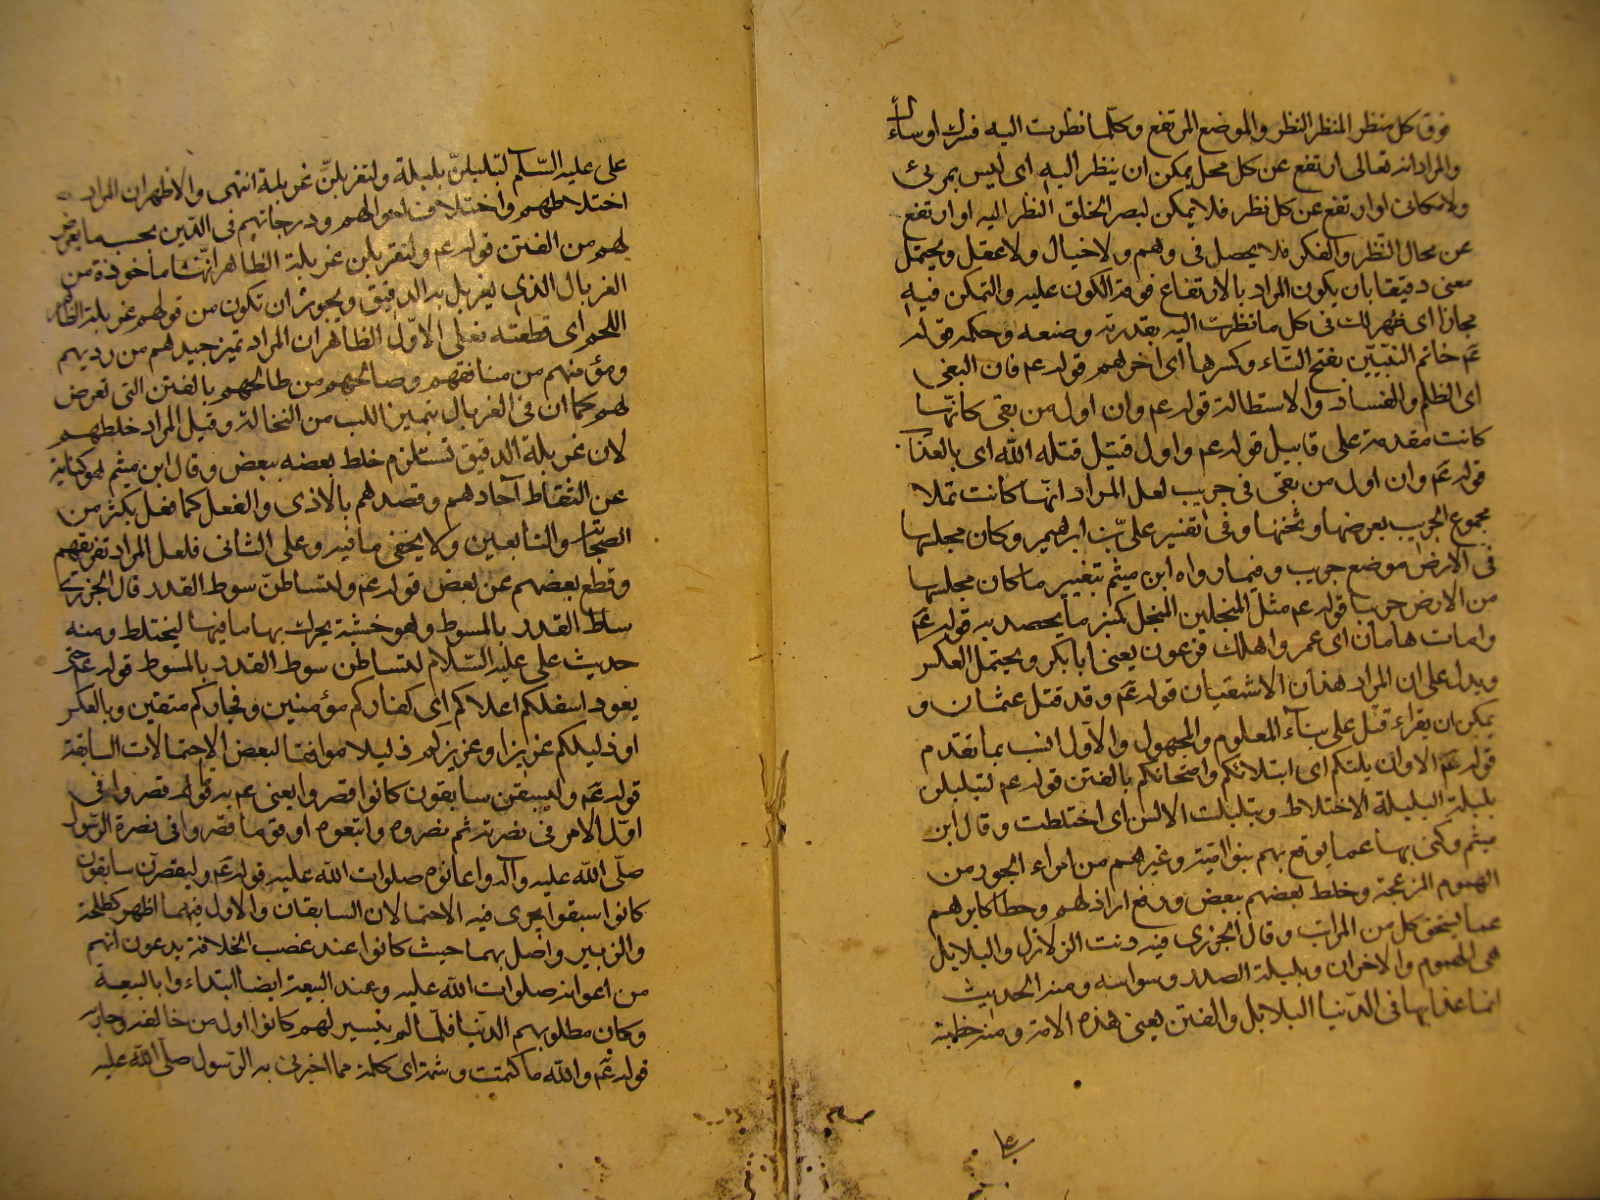 فوق كل منظر المنظر النظر والموضع المرتفع وكلما نظرت اليه فسرك او ساءك
والمراد انه تعالى ارتفع عن كل محل يمكن ان ينظر اليه اى ليس بمرئى
ولا مكانى او ارتفع عن كل نظر فلا يمكن لبصر الخلق النظر اليه او ارتفع
عن محال النظر والفكر فلا يحصل فى وهم ولا خيال ولا عقل ويحتمل
معنى دقيقا بان يكون المراد بالارتفاع فوقه الكون عليه والتمكن فيه
مجازا اى ظهر لك فى كل ما نظرت اليه بقدرته وصنعه وحكمه قوله
عم خاتم النبيّين بفتح التاء وكسرها اى اخرهم قوله عم فان البغى
اى الظلم والفساد والاستطالة قوله عم وان اول من بغى كانها
كانت مقدمة على قابيل قوله عم واول قتيل قتله الله اى بالعذاب
قوله عم وان اول من بغى فى جريب لعل المراد انها كانت تملا
مجموع الجريب بعرضها وثخنها وفى تفسير على بن ابرهيم وكان مجلسها
فى الارض موضع جريب وفيما رواه ابن ميثم بتغيير ما كان مجلسها
من الارض جريبا قوله عم مثل المنجلين المنجل كمنبر ما يحصد به قوله عم
وامات هامان اى عمر واهلك فرعون يعنى ابا بكر ويحتمل العكس
ويدل على ان المراد هذان الاشقيان قوله عم وقد قتل عثمان و
يمكن ان يقراء قتل على بناء المعلوم والمجهول والاول انسب بما تقدم
قوله عم الا وان بلتكم اى ابتلائكم وامتحانكم بالفتن قوله عم لتبلبلن
بلبلة البلبلة الاختلاط وتبلبلت الالسن اى اختلطت وقال ابن
ميثم وكنى بها عما يوقع بهم بنو امية وغيرهم من امراء الجور من
الهموم المزعجة وخلط بعضهم ببعض ورفع اراذلهم وحط اكابرهم
عما يستحق كل من المراتب وقال الجزرى فيه دنت الزلازل والبلابل
هى الهموم والاحزان وبلبلة الصدر وسواسه ومنه الحديث
انما عذابها فى الدنيا البلابل والفتن يعنى هذه الامة ومنه خطبة
على عليه السّلم لتبلبلنّ بلبلة ولتغربلنّ غربلة انتهى والاظهر ان المراد
اختلاطهم واختلاف احوالهم ودرجاتهم فى الدّين بحسب ما يعرض
لهم من الفتن قوله عم ولتغربلن غربلة الظاهر انّها ماخوذة من
الغربال الذى يغربل به الدقيق ويجوز ان تكون من قولهم غربلت
اللحم اى قطعته فعلى الاوّل الظاهر ان المراد تميز جيدهم من رديهم
ومؤمنهم من منافقهم وصالحهم من طالحهم بالفتن التى تعرض
لهم كما ان فى الغربال يتميز اللب من النخالة وقيل المراد خلطهم
لان غربلة الدقيق تستلزم خلط بعضه ببعض وقال ابن ميثم هو كناية
عن التقاط آحادهم وقصدهم بالاذى والقتل كما فعل بكثير من
الصحابة والتابعين ولا يخفى ما فيه وعلى الثانى فلعل المراد تفريقهم
وقطع بعضهم عن بعض قوله عم ولتساطنّ سوط القدر قال الجزرى
ساط القدر بالمسوط وهو خشبة يحرك بها ما فيها ليختلط ومنه
حديث على عليه السّلام لتساطن سوط القدر بالمسوط قوله عم حتى
يعود اسفلكم اعلاكم اى كفاركم مؤمنين وفجاركم متقين وبالعكس
او ذليلكم عزيزا وعزيزكم ذليلا موافقا لبعض الاحتمالات السابقة
قوله عم وليسبقن سابقون كانوا قصروا يعنى عم به قوما قصروا فى
اوّل الامر فى نصرته ثم نصروه واتبعوه او قوما قصروا فى نصرة الرّسول
صلّى الله عليه وآله واعانوه صلوات الله عليه قوله عم وليقصرن سابقون
كانوا سبقوا يجرى فيه الاحتمالان السابقان والاول فيهما اظهر كطلحة
والزبير واضرابهما حيث كانوا عند غصب الخلافة يدعون انهم
من اعوانه صلوات الله عليه وعند البيعة ايضا ابتداء وا بالبيعة
وكان مطلوبهم الدّنيا فلمّا لم يتيسر لهم كانوا اول من خالفه وحاربه
قوله عم والله ما كتمت وشمة اى كلمة مما اخبرنى به الرّسول صلّى الله عليه